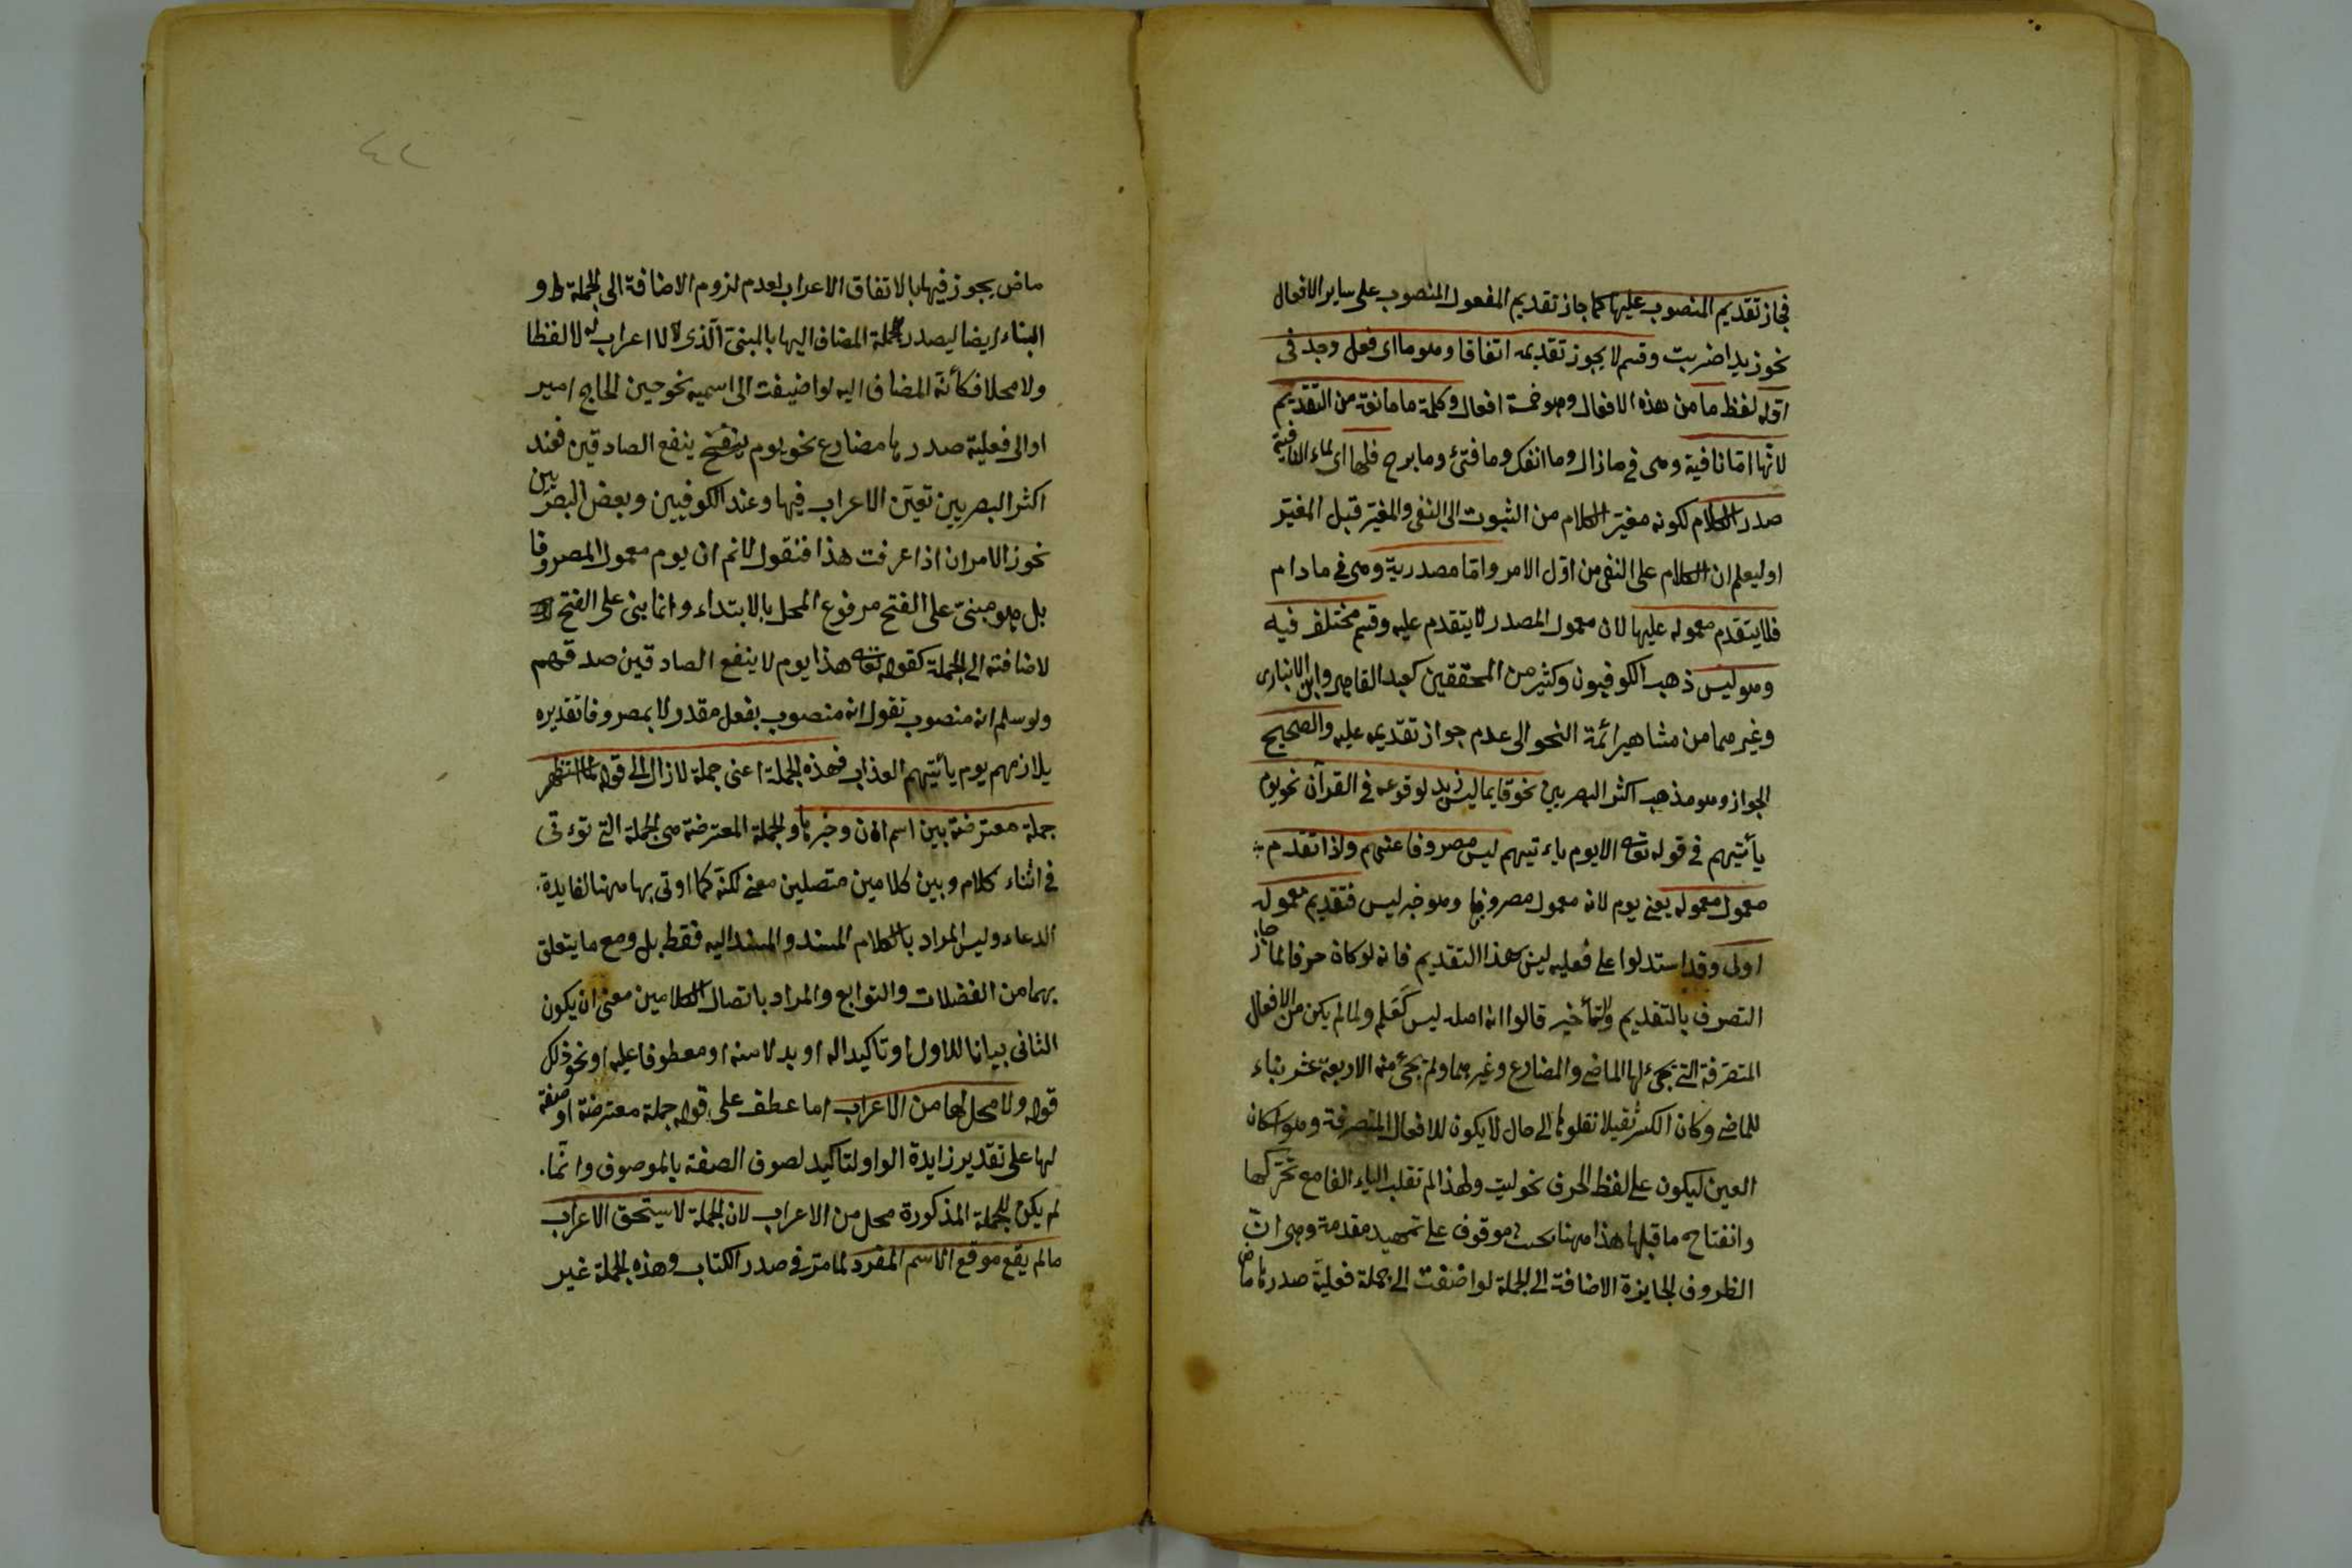 فجاز تقديم المنصوب عليها كما جاز تقديم المفعول المنصوب على ساير الافعال
نحو زيدا ضربت وقسم لا يجوز تقديمه اتفاقا وهو ما اى فعل وجد فى
اوله لفظ ما من هذه الافعال وهو خمسة افعال وكلمة ما مانعة من التقديم
لانها اما نافية وهى فى مازال وما انفك وما فتئ وما برح فلها اى لماء النافية
صدر الكلام لكونه مغير الكلام من الثبوت الى النفى والمغير قبل المغير
او ليعلم ان الكلام على النفى من اول الامر واما مصدرية وهى فى مادام
فلا يتقدم معموله عليها لان معمول المصدر لا يتقدم عليه وقسم مختلف فيه
وهو ليس ذهب الكوفيون وكثير من المحققين كعبد القاهر وابن الانبارى
وغيرهما من مشاهير ائمة النحو الى عدم جواز تقديمه عليه والصحيح
الجواز وهو مذهب اكثر البصريين نحو قايما ليس زيد لوقوعه فى القرآن نحو يوم
يأتيهم فى قوله تعالى الا يوم ياءتيهم ليس مصروفا عنهم ولذا تقدم
معمول معموله يعنى يوم لانه معمول مصروفا وهو خبر ليس فتقديم معموله
اولى وقد استدلوا على فعليه ليس بهذا التقديم فانه لو كان حرفا لما جاز
التصرف بالتقديم والتأخير قالوا انه اصله ليس كعلم ولما لم يكن من الافعال
المتصرفة التى يجىء لها الماضى والمضارع وغيرهما ولم يجئ منه الاربعة عشر بناء
للماضى وكان الكسر ثقيلا نقلوها الى حال لا يكون للافعال المتصرفة وهو اسكان
العين ليكون على لفظ الحرف نحو ليت ولهذا لم تقلب الياء الفا مع تحركها
وانفتاح ما قبلها هذا ههنا بحث موقوف على تمهيد مقدمة وهى ان
الظروف الجايزة الاضافة الى الجملة لو اضيفت الى جملة فعلية صدرها ماض
٤٢
ماض يجوز فيها بالاتفاق الاعراب لعدم لزوم الاضافة الى الجملة و
البناء ايضا ليصدر الجملة المضاف اليها بالمبنى الذى لا اعراب له لا لفظا
ولا محلا فكأنه المضاف اليه لو اضيفت الى اسميه نحو حين الحاج امير
او الى فعلية صدرها مضارع نحو يوم ينفع الصادقين فعند
اكثر البصريين تعين الاعراب فيها وعند الكوفيين وبعض البصريين
نحوز الامران اذا عرفت هذا فنقول لانم ان يوم معمول المصروفا
بل هو مبنى على الفتح مرفوع المحل بالابتداء وانما بنى على الفتح
لاضافته الى الجملة كقوله تعالى هذا يوم لا ينفع الصادقين صدقهم
ولو سلم انه منصوب نقول انه منصوب بفعل مقدر لا بمصروفا تقديره
يلازمهم يوم يأتيهم العذاب فهذه الجملة اعنى جملة لازال الى قوله
جملة معترضة بين اسم ان وخبرها والجملة المعترضة هى الجملة التى توءتى
فى اثناء كلام وبين كلامين متصلين معنى لكنة كما اوتى بها ههنا لفايدة
الدعاء وليس المراد بالكلام المسند والمسند اليه فقط بل ومع ما يتعلق
بهما من الفضلات والتوابع والمراد باتصال الكلامين معنى ان يكون
الثانى بيانا للاول او تاكيدا له او بدلا منه او معطوفا عليه او نحو ذلك
قوله ولا محل لها من الاعراب اما عطف على قوله جملة معترضة او صفة
لها على تقدير زايدة الواو لتاكيد لصوق الصفة بالموصوف وانما
لم يكن للجملة المذكورة محل من الاعراب لان الجملة لا يستحق الاعراب
مالم يقع موقع الاسم المفرد لما مر فى صدر الكتاب وهذه الجملة غير